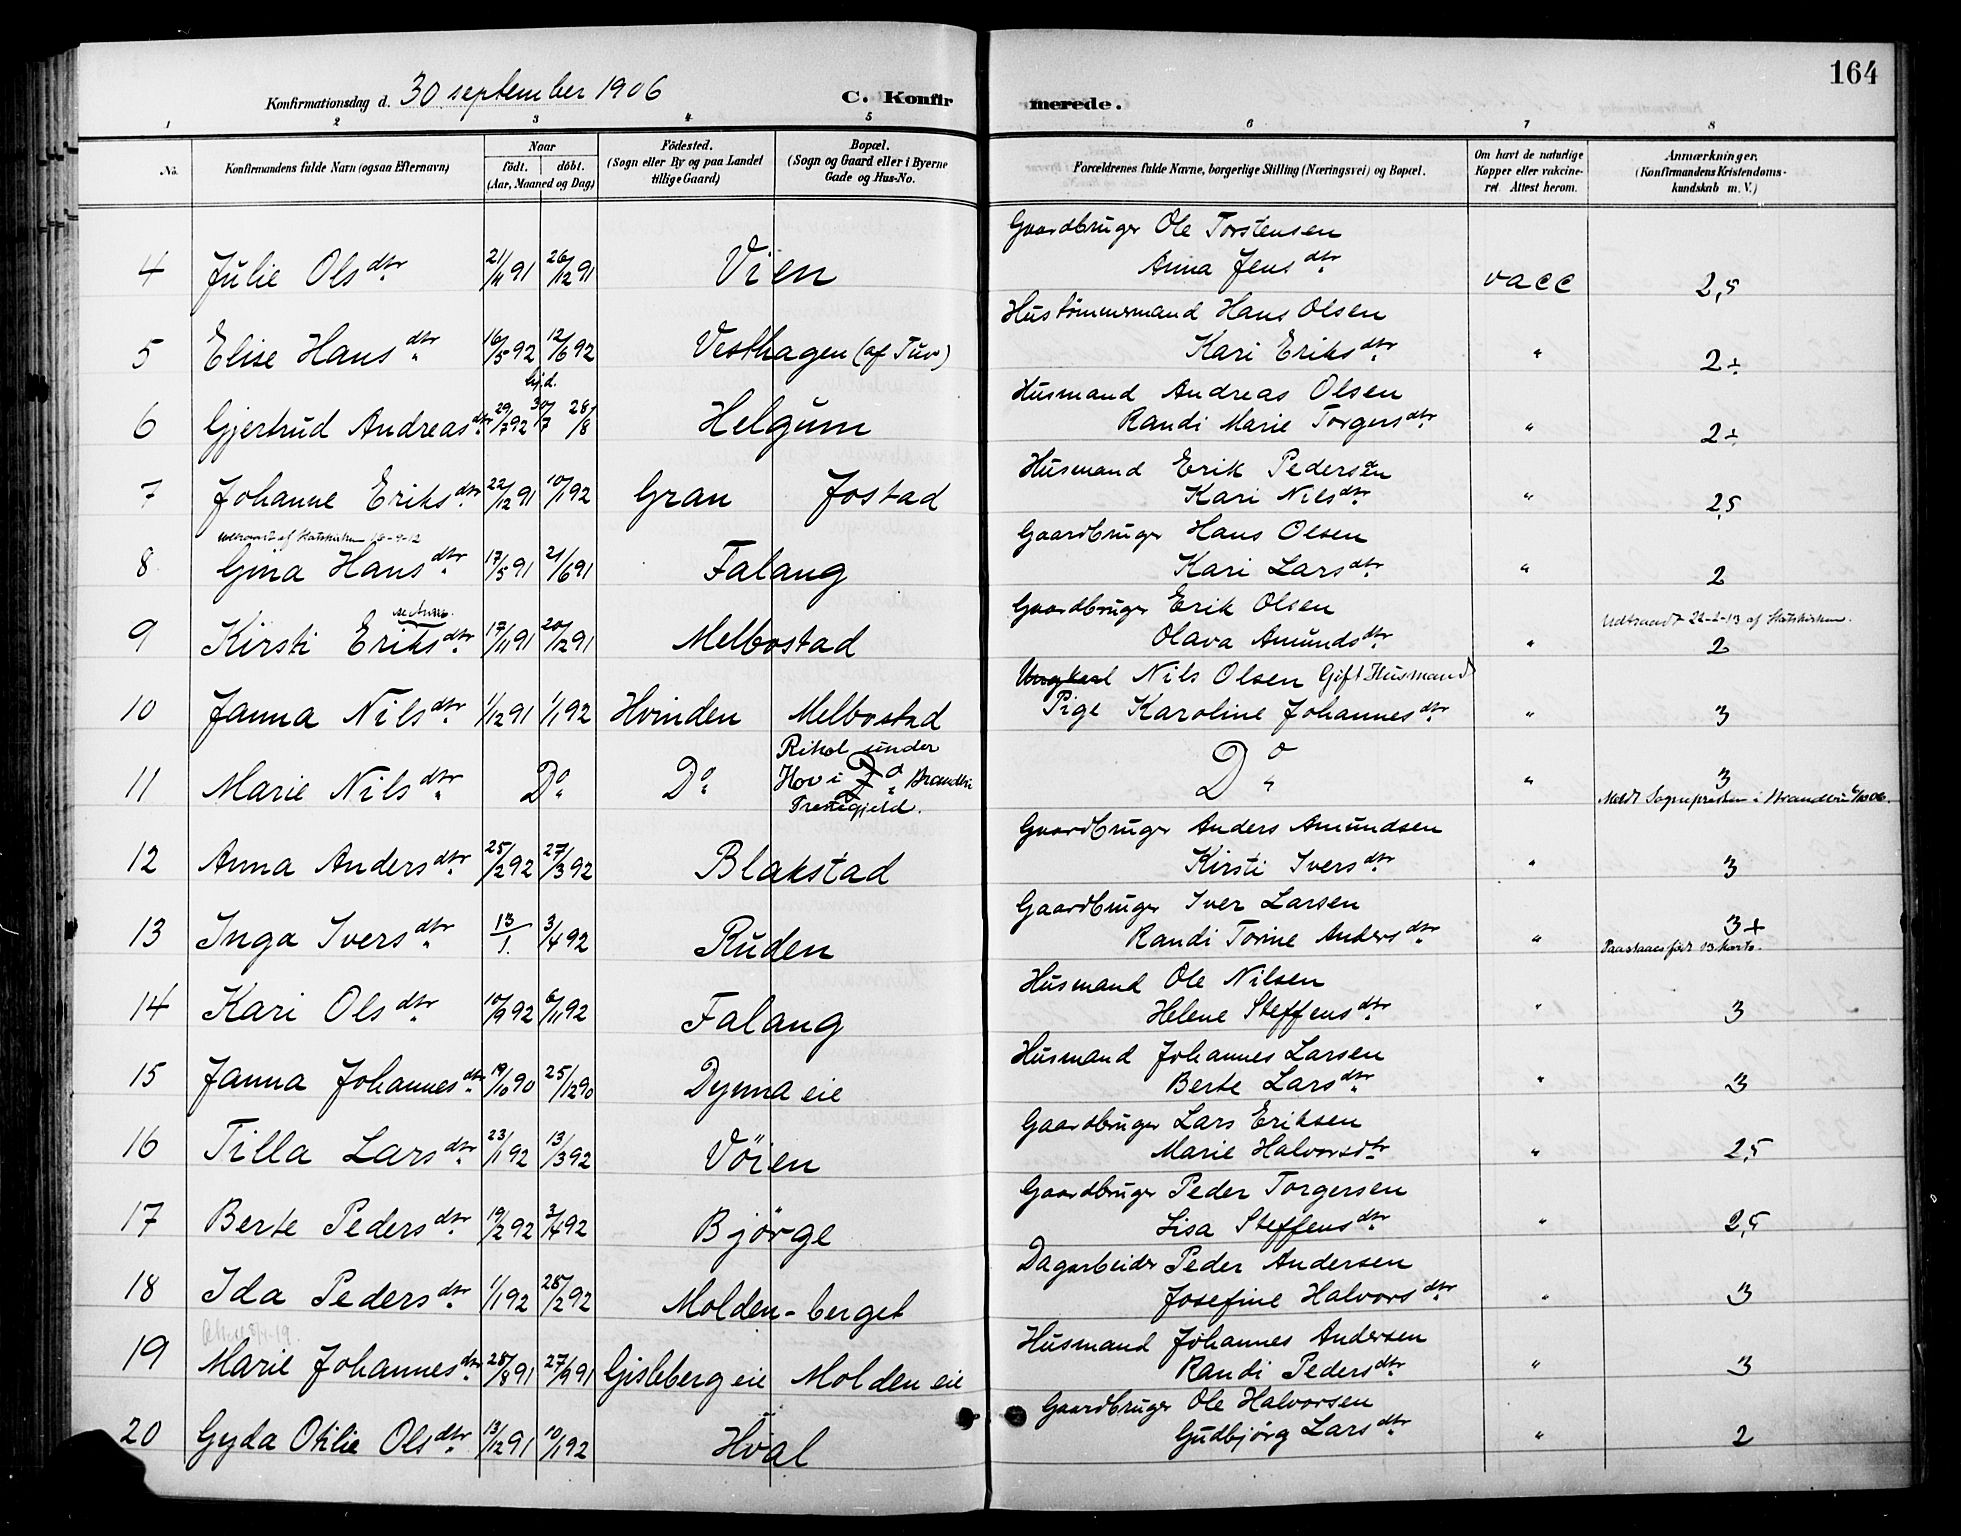 Konfirmationsdag d. 30 september 1906 C. Konfirmerede. 164
1 2 3 4 5 6 7 8
No. Konfirmandens fulde Navn (ogsaa Efternavn) Naar født. døbt. (Aar, Maaned og Dag) Födested. (Sogn eller By og paa Landet tillige Gaard) Bopæl. (Sogn og Gaard eller i Byerne Gade og Hus-No. Forældrenes fulde Navne, borgerlige Stilling (Næringsvei) og Bopæl. Om havt de naturlige Kopper eller vakcineret. Attest herom. Anmærkninger. (Konfirmandens Kristendomskundskab m. V.)
Gaardbruger Ole Torstensen
4 Julie Olsdtr 21/11 91 26/12 91 Vien Anna Jensdtr vacc 2,5
Hustømmermand Hans Olsen
5 Elise Hansdtr 16/5 92 12/6 92 Vesthagen (af Tuv) Kari Eriksdtr " 2÷
hjd.
Husmand Andreas Olsen
6 Gjertrud Andreasdtr 29/7 92 30/7 28/8 Helgum Randi Marie Torgersdtr " 2÷
Husmand Erik Pedersen
7 Johanne Eriksdtr 22/12 91 10/1 92 Gran Jostad Kari Nilsdtr " 2,5
af Statskirken
Gaardbruger Hans Olsen
8 Gina Hansdtr 17/5 91 21/6 91 Falang Kari Larsdtr " 2
Gaardbruger Erik Olsen Udtraadt 22-2-13 af Statskirken.
9 Kirsti Eriksdtr 17/11 91 20/12 91 Melbostad Olava Amundsdtr " 2
Ungkarl Nils Olsen Gift Husmand
10 Janna Nilsdtr 1/12 91 1/1 92 Hvinden Melbostad Pige Karoline Johannesdtr " 3
Rikol under
11 Marie Nilsdtr Do Do Hov i Do Brandbu Do " 3
Præstegjeld. Meldt Sognepresten i Brandbu 6/10 06.
Gaardbruger Anders Amundsen
12 Anna Andersdtr 25/2 92 27/3 92 Blakstad Kirsti Iversdtr " 3
Gaardbruger Iver Larsen
13 Inga Iversdtr 13/1. 3/4 92 Ruden Randi Torine Andersdtr " 3+
Paastaaes født 13 Marts.
Husmand Ole Nilsen
14 Kari Olsdtr 10/9 92 6/11 92 Falang Helene Steffensdtr " 3
Husmand Johannes Larsen
15 Janna Johannesdtr 19/10 90 25/12 90 Dynna eie Berte Larsdtr " 3
Gaardbruger Lars Eriksen
16 Tilla Larsdtr 23/1 92 13/3 92 Vöien Marie Halvorsdtr " 2,5
Gaardbruger Peder Torgersen
17 Berte Pedersdtr 19/2 92 3/4 92 Bjørge Lisa Steffensdtr " 2,5
Dagarbeider Peder Andersen
18 Ida Pedersdtr 1/1 92 28/2 92 Molden-berget Josefine Halvorsdtr " 3
Husmand Johannes Andersen
19 Marie Johannesdtr 28/8 91 27/9 91 Gisleberg eie Molden eie Randi Pedersdtr " 3
Gaardbruger Ole Halvorsen
20 Gyda Otilie Olsdtr 13/12 91 10/1 92 Hval Gudbjørg Larsdtr " 2